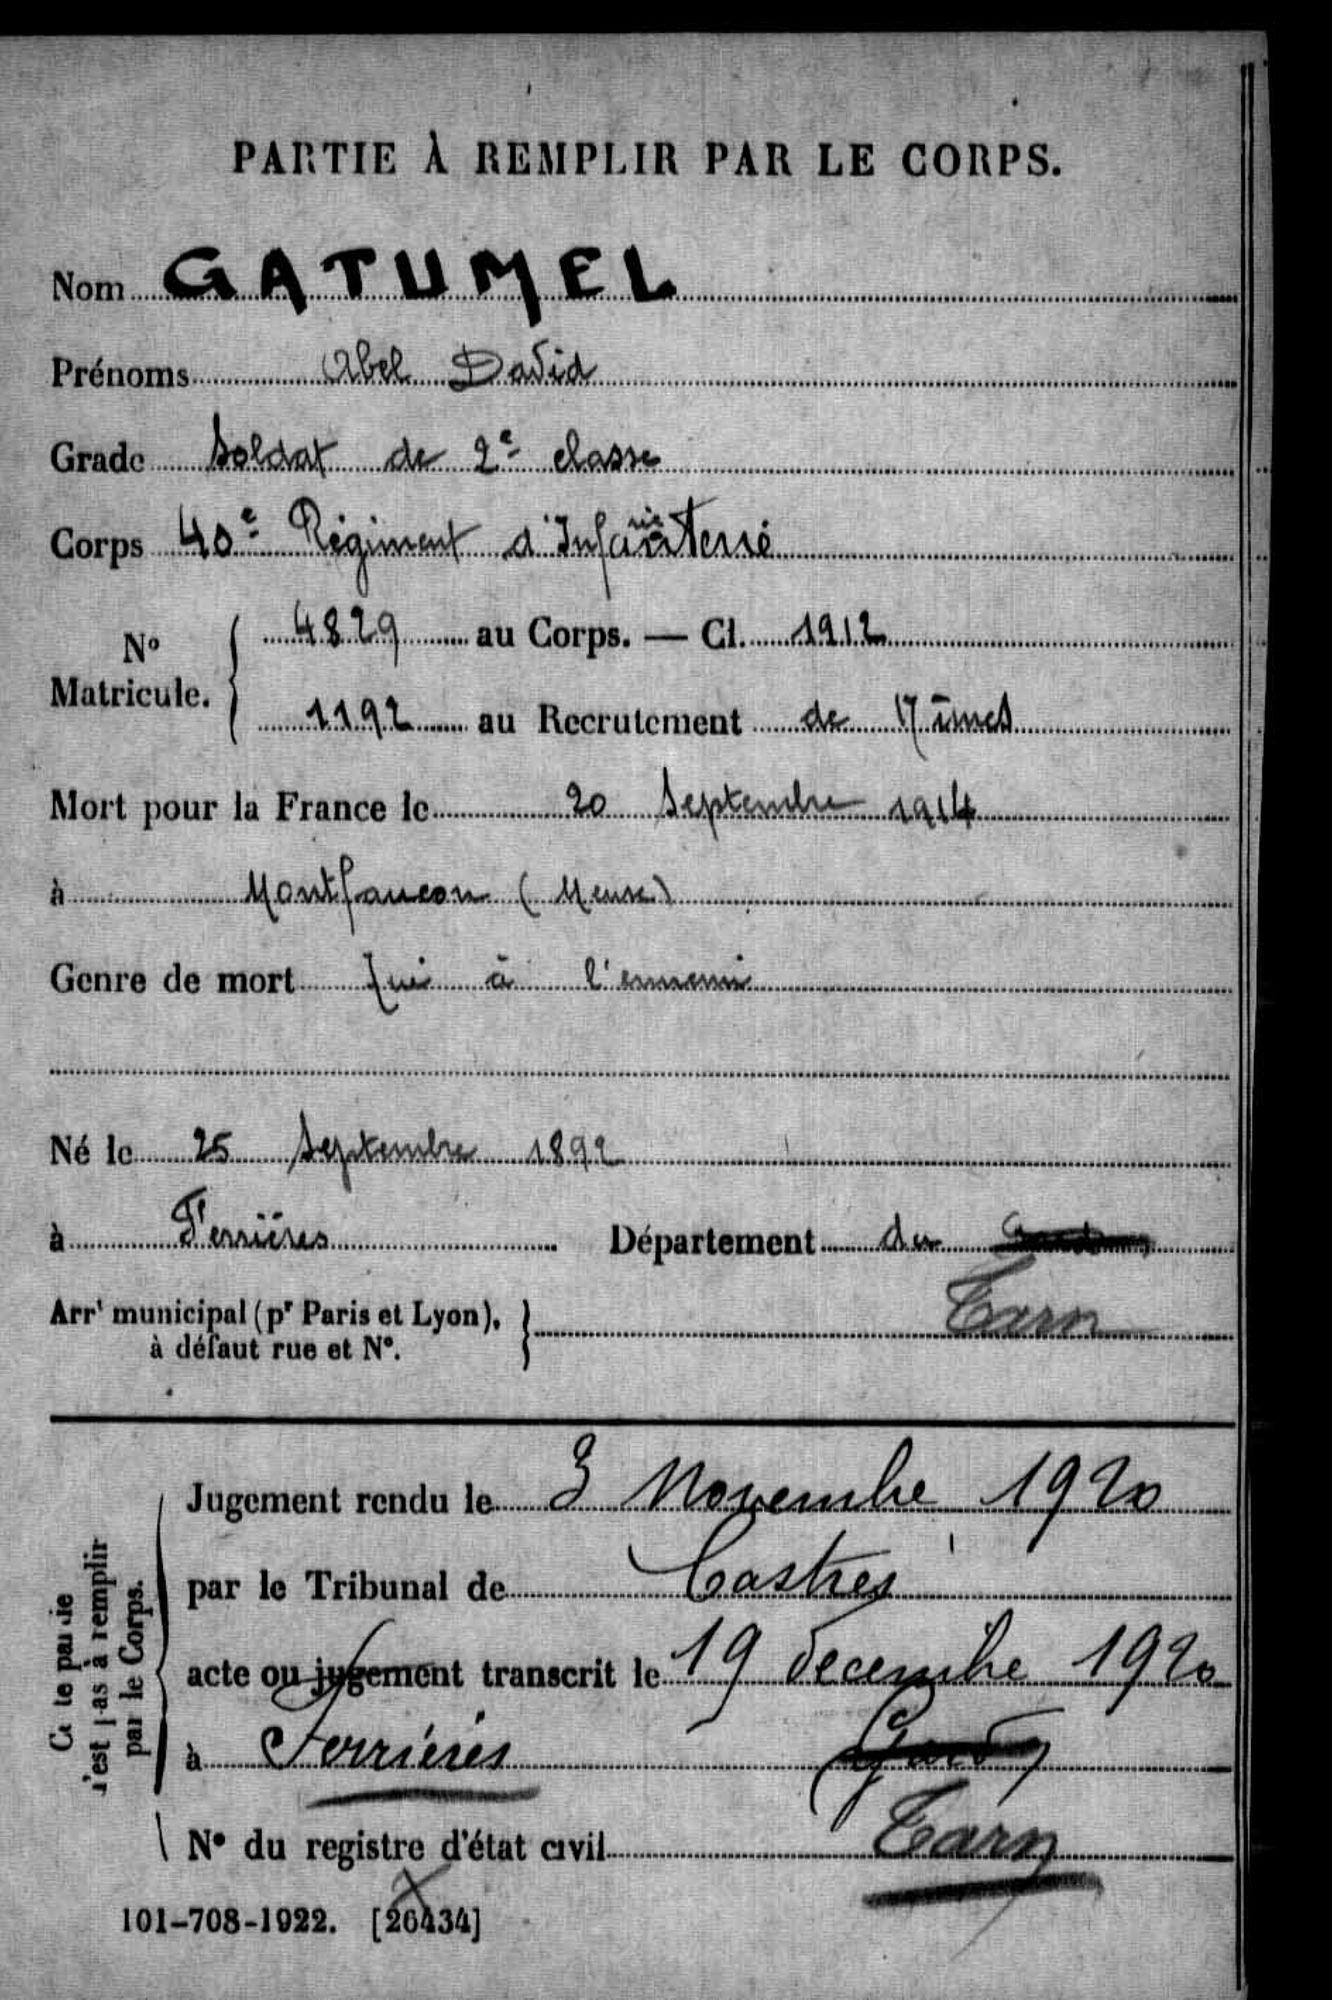 PARTIE À REMPLIR PAR LE CORPS.
Nom GATUMEL
Prénoms Abel David
Grade Soldat de 2e classe
Corps 40e Régiment d'Infanterie
N° Matricule. 4829 au Corps. — Cl. 1912
1192 au Recrutement de Nîmes
Mort pour la France le 20 Septembre 1914
à Montfaucon (Meuse)
Genre de mort Tué à l'ennemi
Né le 25 Septembre 1892
à Ferrières Département du Gard
Tarn
Arrt municipal (pr Paris et Lyon), à défaut rue et N°.
Cette partie n'est pas à remplir par le Corps.
Jugement rendu le 3 Novembre 1920
par le Tribunal de Castres
acte ou jugement transcrit le 19 décembre 1920
à Ferrières Gard
N° du registre d'état civil Tarn
101-708-1922. [26434]